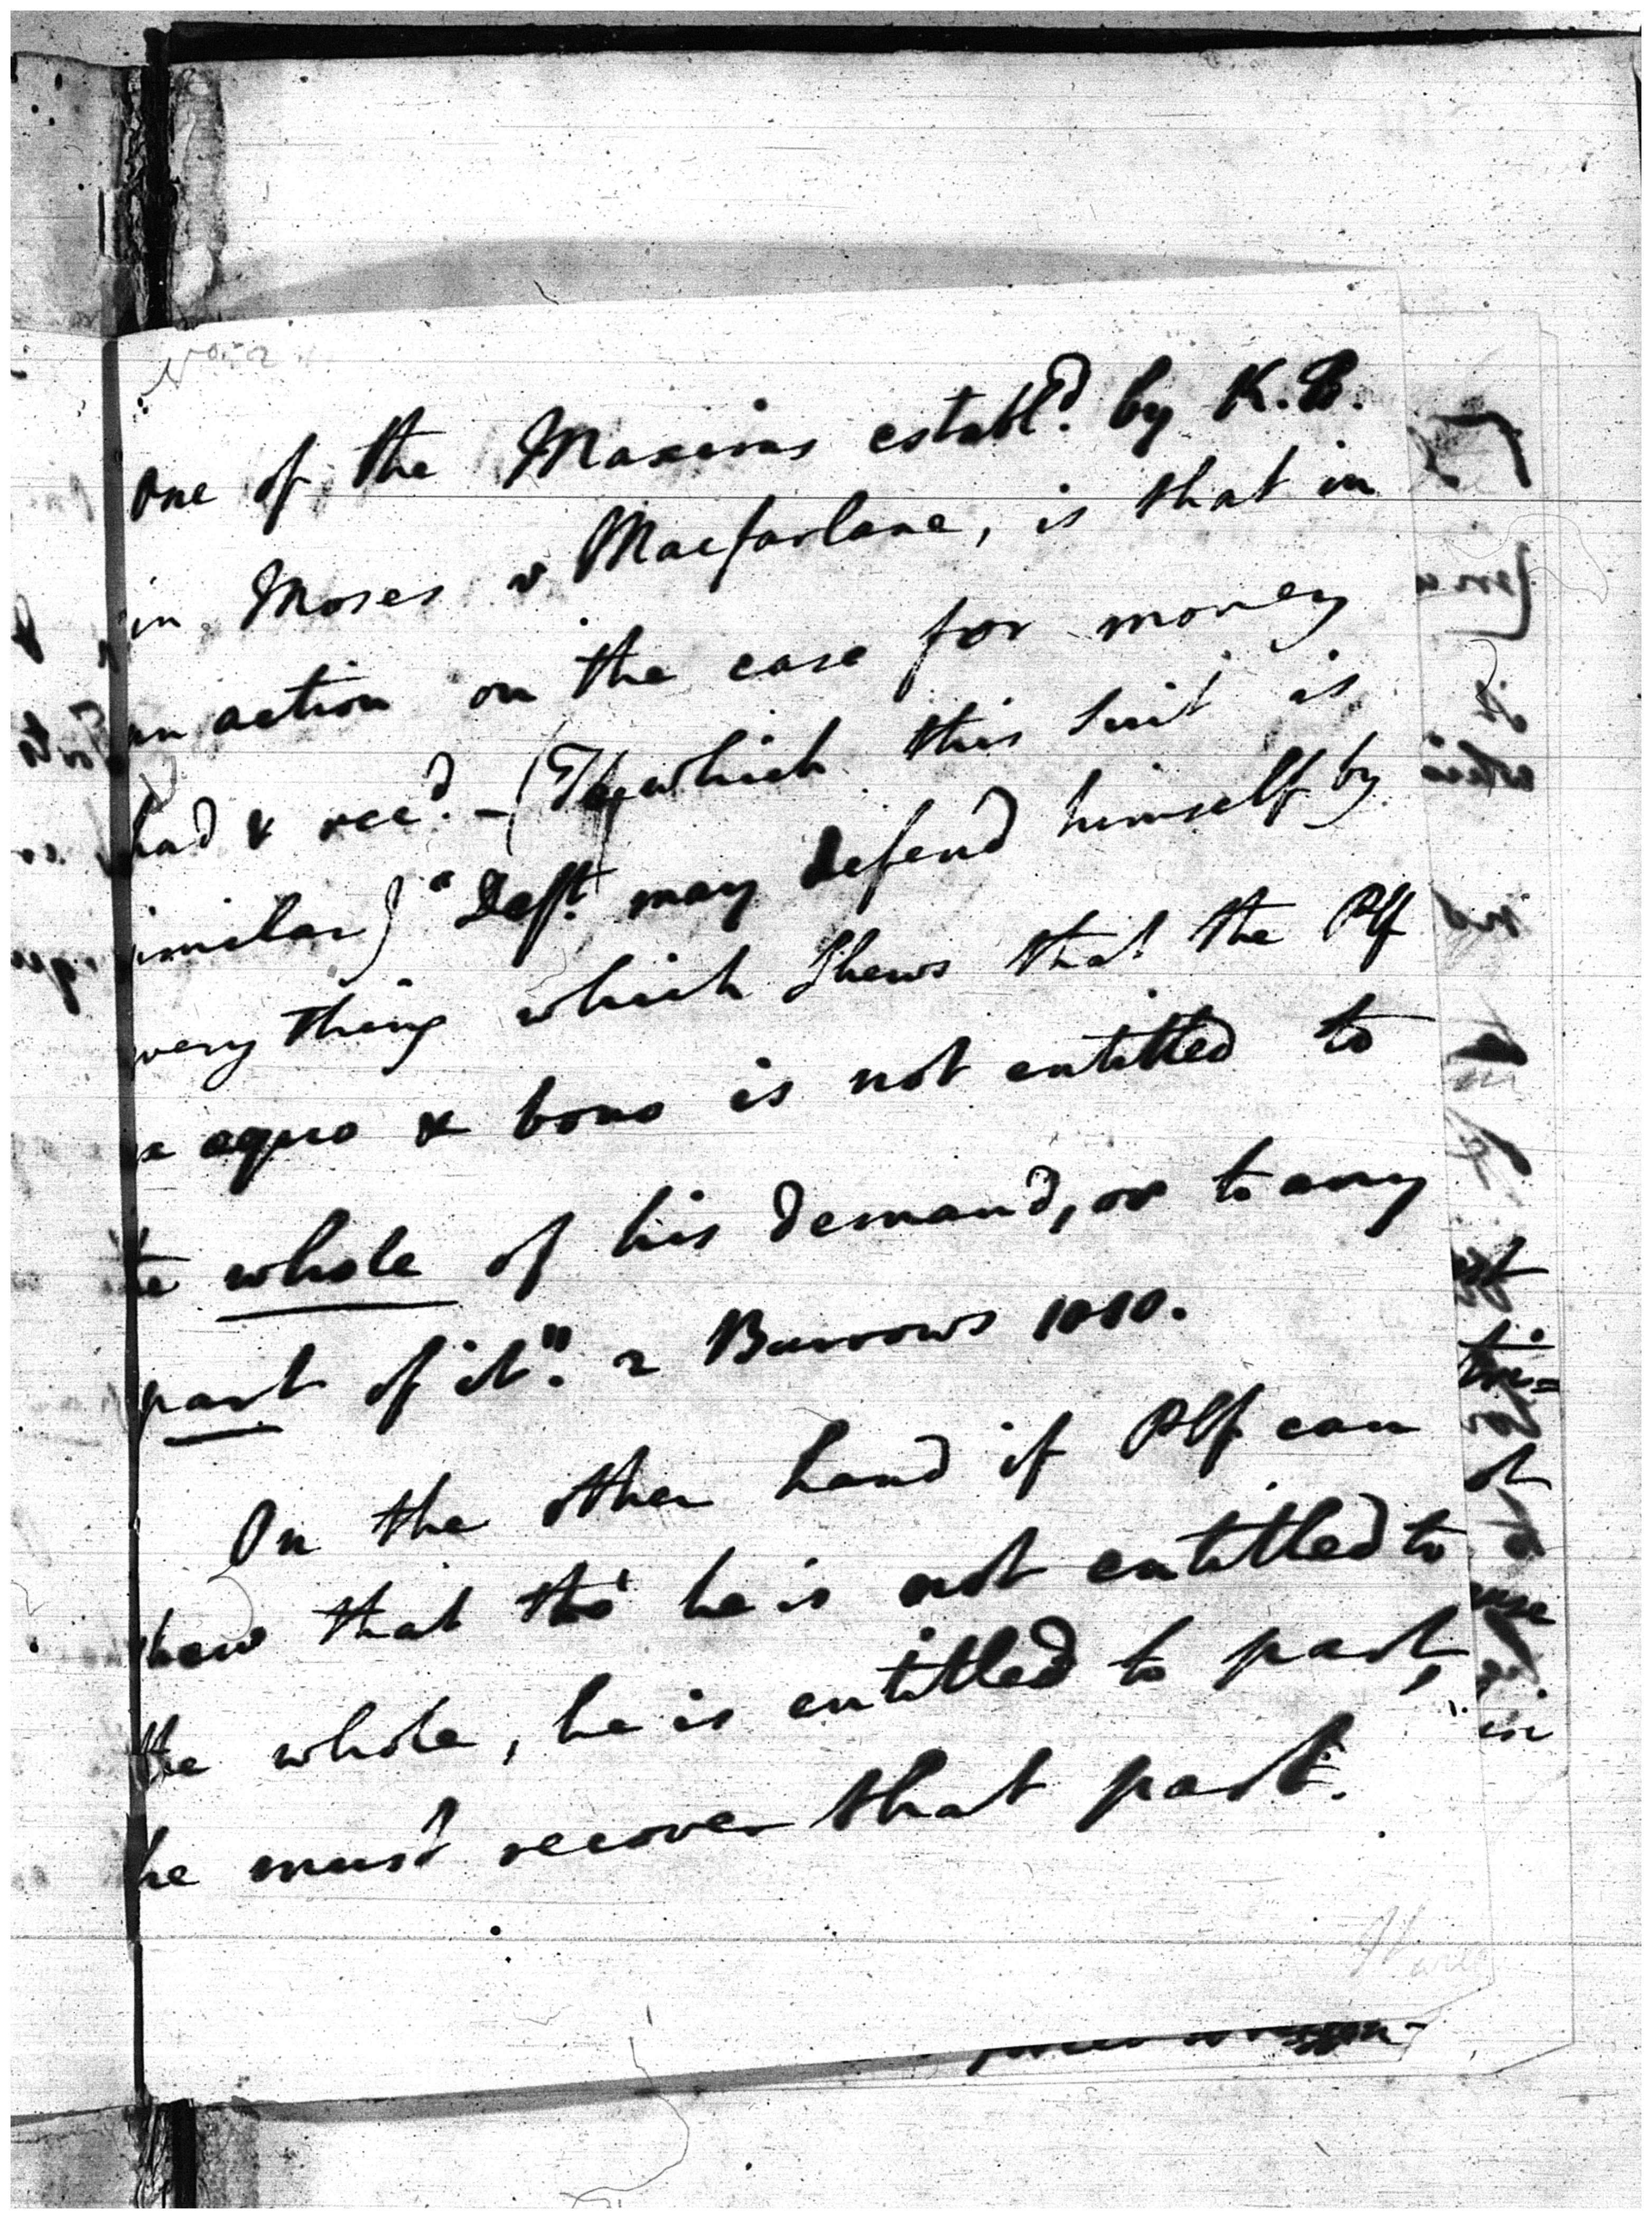 No. 2
One of the Maxims establ'd. by K.B.
in Moses v Macfarlane, is that in
an action on the case for money
had & rec'd. – (To which this suit is
similar) "Deft. may defend himself by
very thing which Shews that the Plf
æquo & bono is not entitled to
the whole of his demand, or to any
part of it". 2 Burrows 1010.
On the other hand if Plf can
hew that tho' he is not entitled to
the whole, he is entitled to part,
he must recover that part.